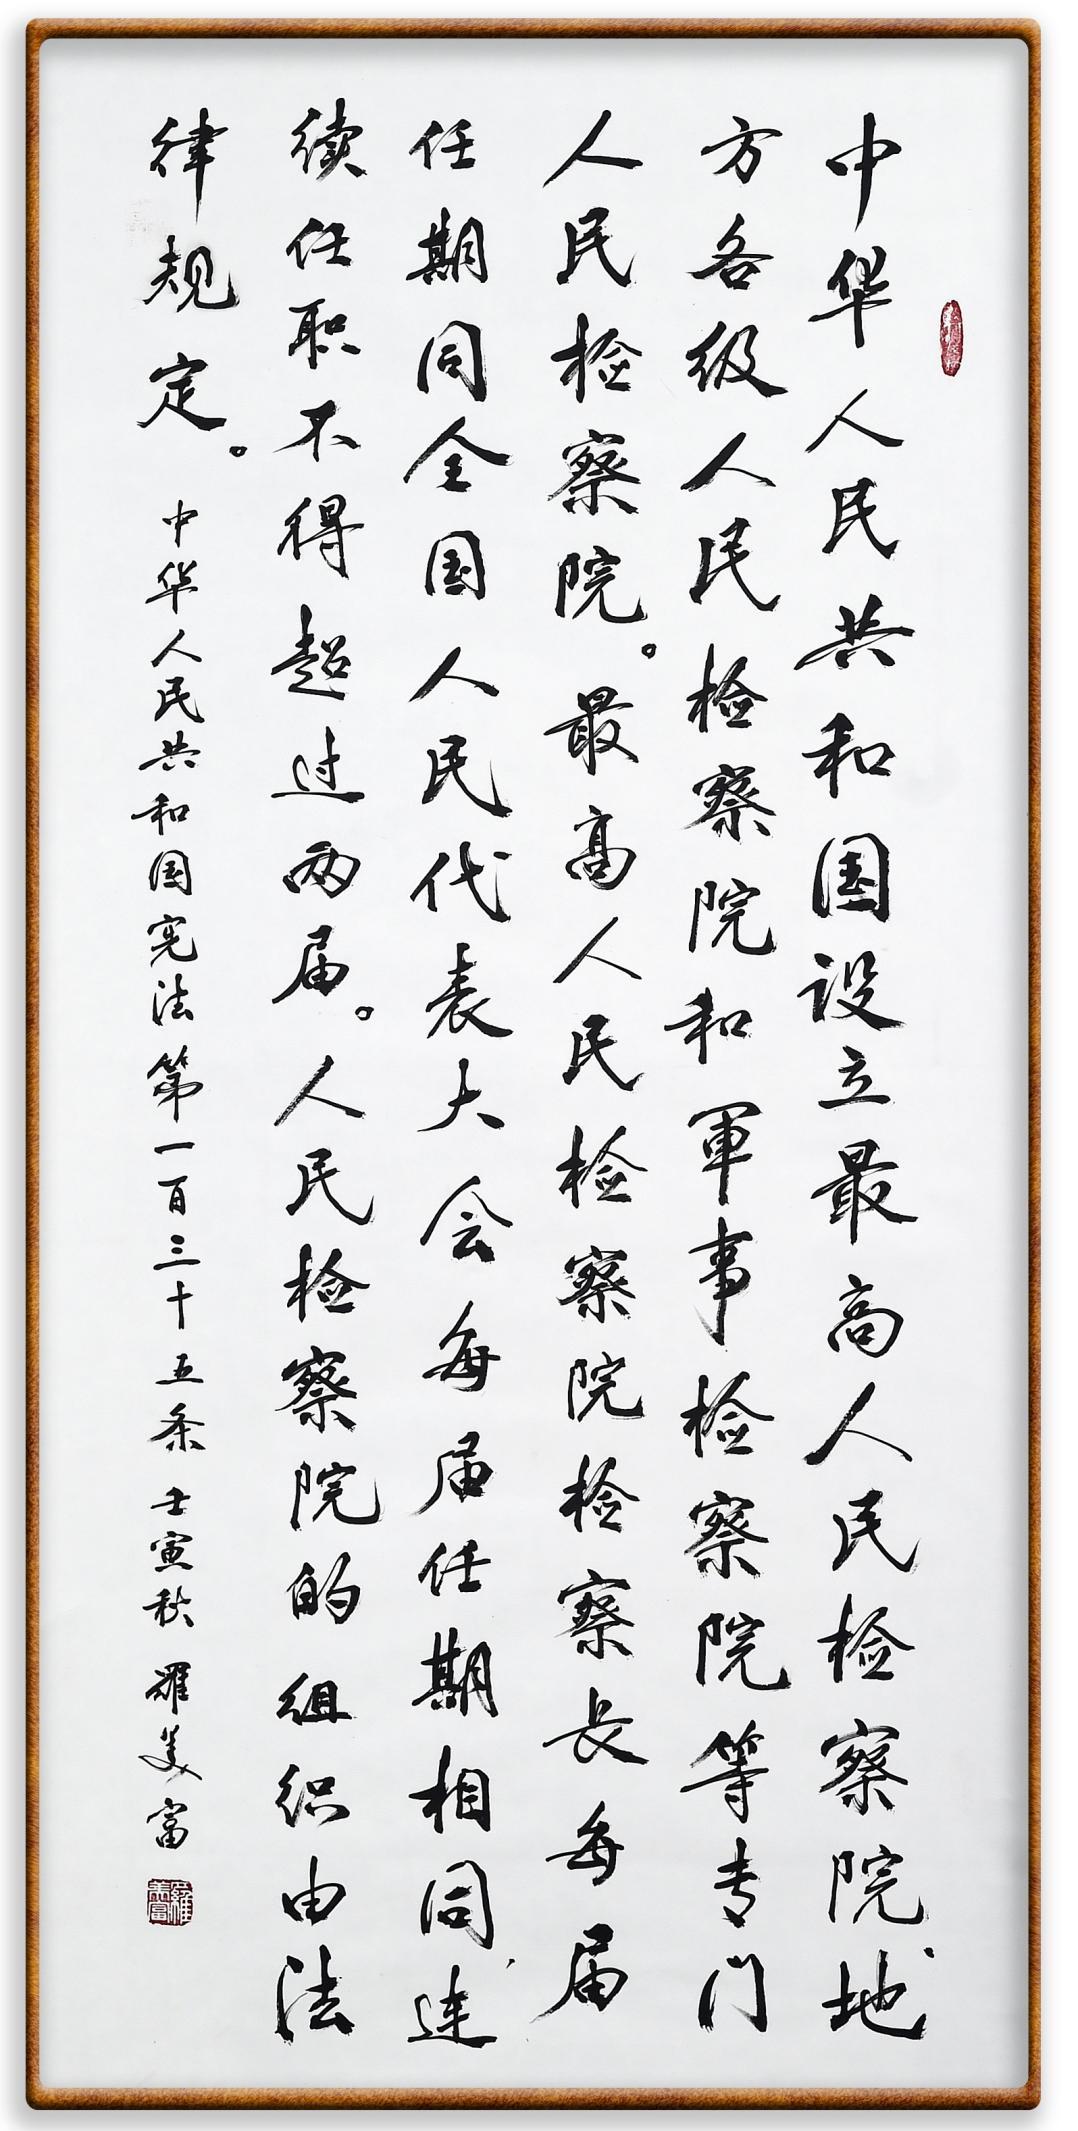 中华人民共和国设立最高人民检察院、地
方各级人民检察院和軍事检察院等专门
人民检察院。最高人民检察院检察长每届
任期同全国人民代表大会每届任期相同，连
续任职不得超过两届。人民检察院的组织由法
律规定。
中华人民共和国宪法第一百三十五条 壬寅秋 羅美富
羅美富